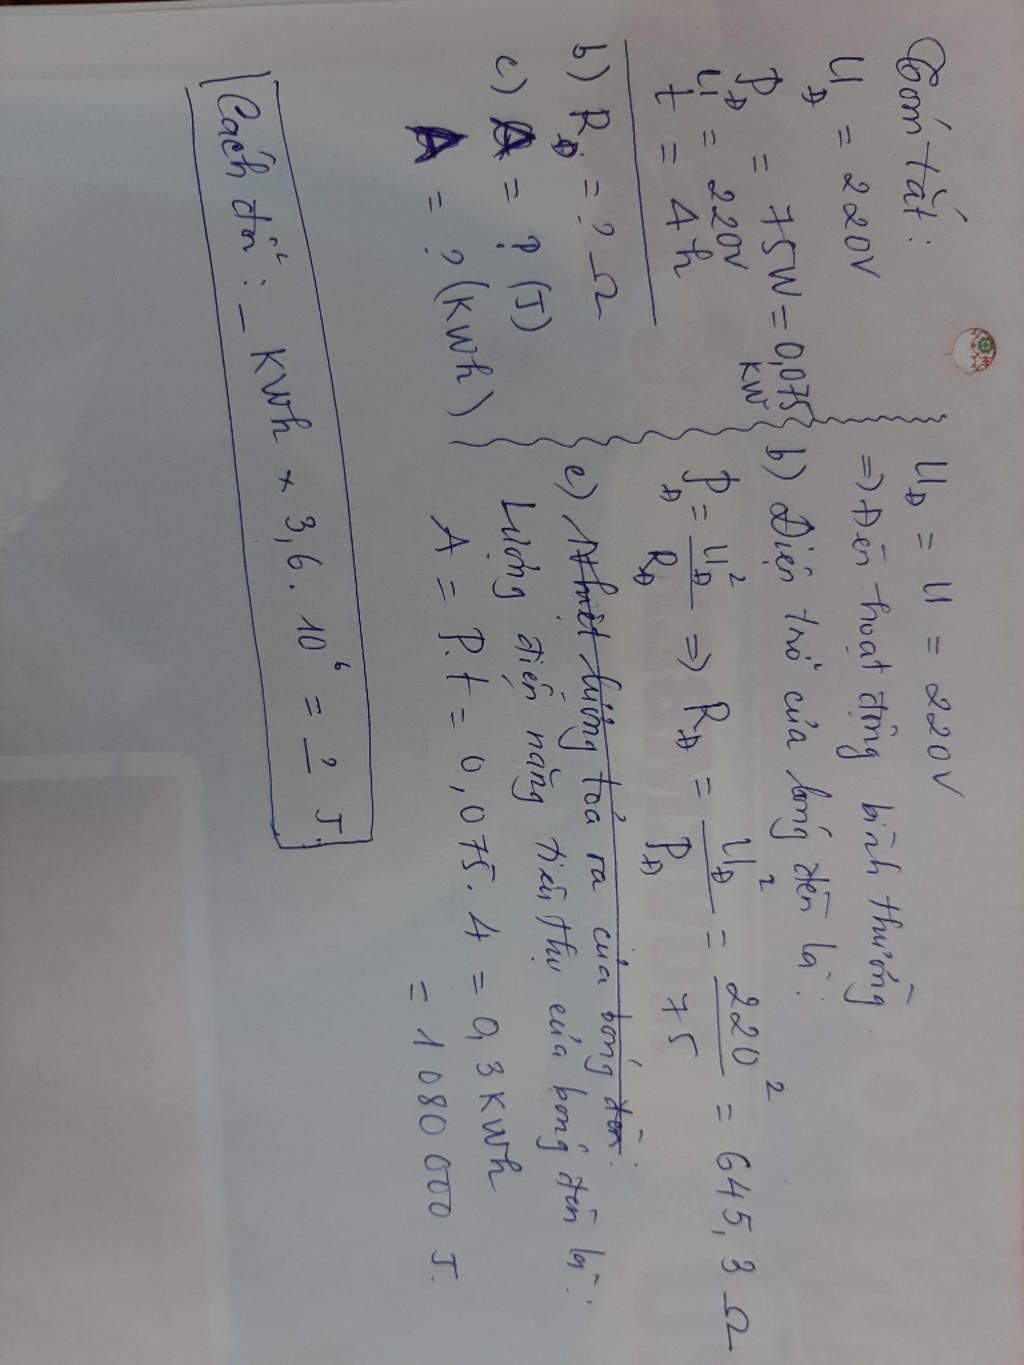 Tóm tắt:
U_Đ = 220V
P_Đ = 75W = 0,075 KW
U_Đ = 220V
t = 4h
b) R_Đ = ? Ω
c) A = ? (J)
A = ? (KWh)
U_Đ = U = 220V
=> Đèn hoạt động bình thường
b) Điện trở của bóng đèn là:
P_Đ = U_Đ² / R_Đ => R_Đ = U_Đ² / P_Đ = 220² / 75 = 645,3 Ω
c) Nhiệt lượng toả ra của bóng đèn:
Lượng điện năng tiêu thụ của bóng đèn là:
A = P.t = 0,075.4 = 0,3 KWh
= 1080 000 J.
Cách đổi: - KWh × 3,6.10⁶ = ? J.